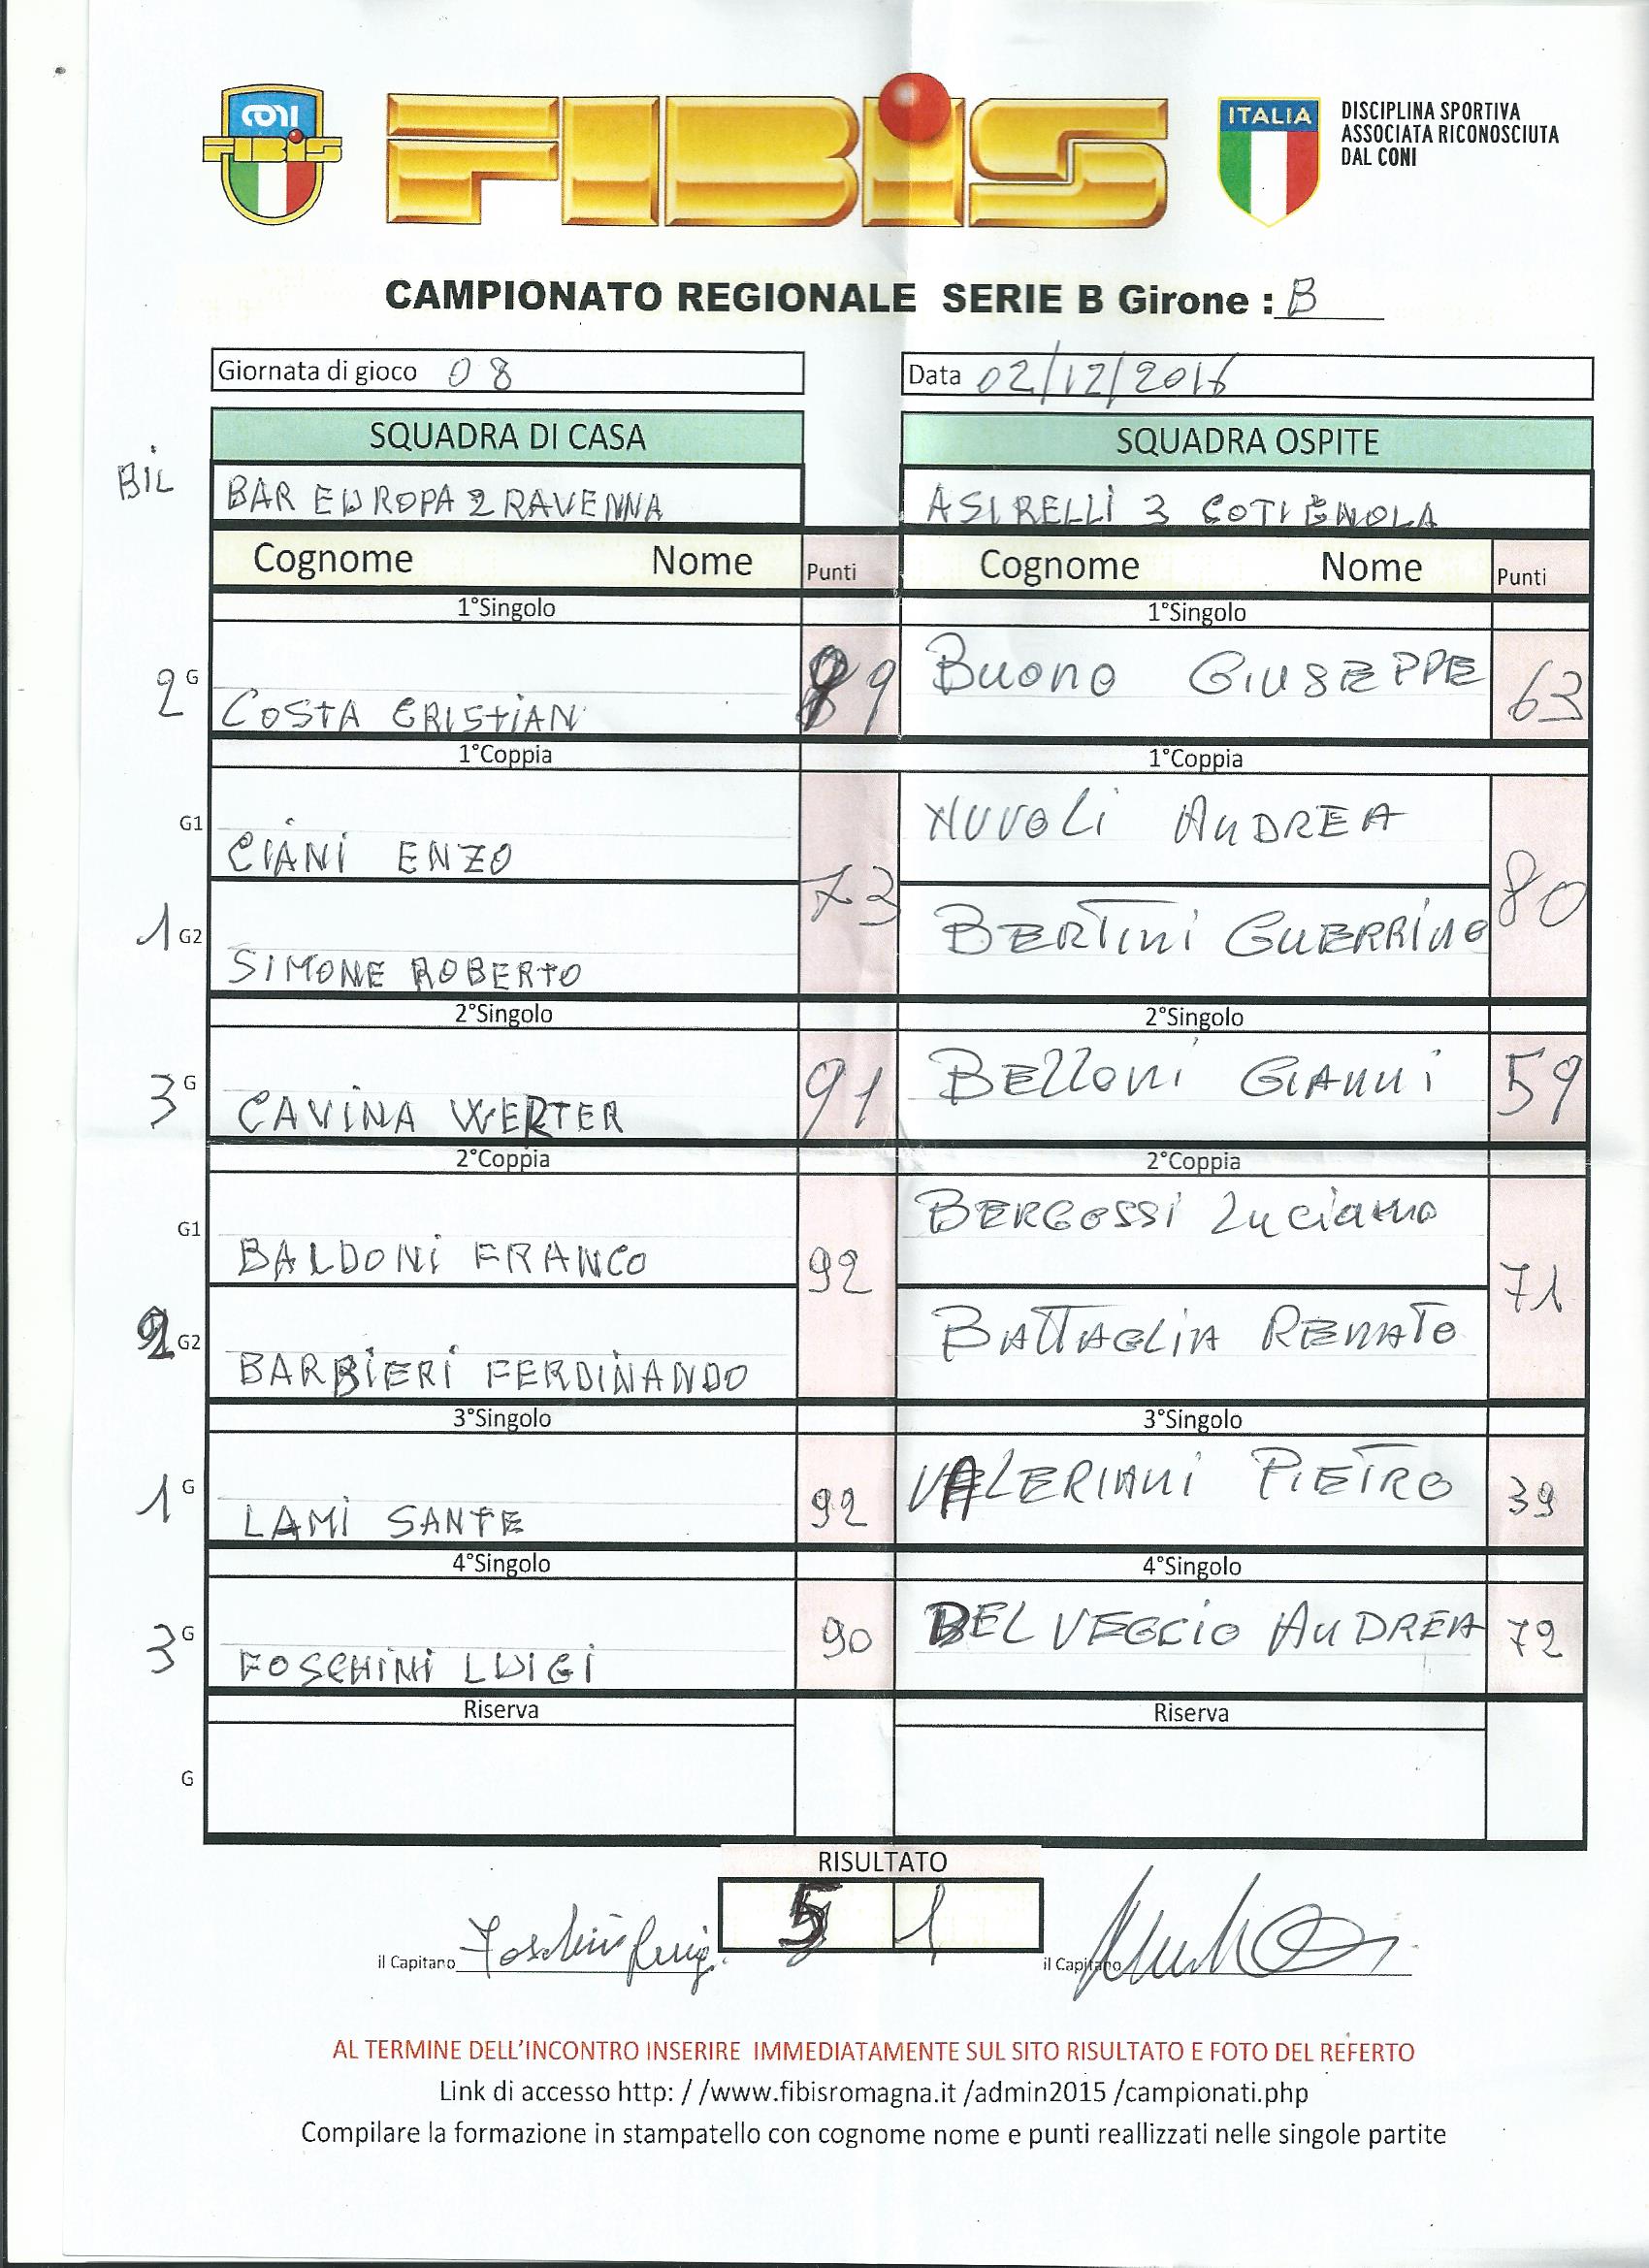 CONI
FIBIS
FIBIS
ITALIA
DISCIPLINA SPORTIVA
ASSOCIATA RICONOSCIUTA
DAL CONI
CAMPIONATO REGIONALE SERIE B Girone : B
Giornata di gioco 08 Data 02/12/2016
SQUADRA DI CASA SQUADRA OSPITE
BIL BAR EUROPA 2 RAVENNA ASIRELLI 3 COTIGNOLA
Cognome Nome Punti Cognome Nome Punti
1°Singolo 1°Singolo
2 G COSTA CRISTIAN 89 BUONO GIUSEPPE 63
1°Coppia 1°Coppia
G1 CIANI ENZO NUVOLI ANDREA
73 80
1 G2 SIMONE ROBERTO BERTINI GUERRINO
2°Singolo 2°Singolo
3 G CAVINA WERTER 91 BELLONI GIANNI 59
2°Coppia 2°Coppia
G1 BALDONI FRANCO BERGOSSI Luciano
92 71
2 G2 BARBIERI FERDINANDO BATTAGLIA RENATO
3°Singolo 3°Singolo
1 G LAMI SANTE 92 VALERIANI PIETRO 39
4°Singolo 4°Singolo
3 G FOSCHINI LUIGI 90 BEL VECCIO ANDREA 72
Riserva Riserva
G
RISULTATO
5 1
il Capitano Foschini Luigi il Capitano
AL TERMINE DELL'INCONTRO INSERIRE IMMEDIATAMENTE SUL SITO RISULTATO E FOTO DEL REFERTO
Link di accesso http: / /www.fibisromagna.it /admin2015 /campionati.php
Compilare la formazione in stampatello con cognome nome e punti reallizzati nelle singole partite